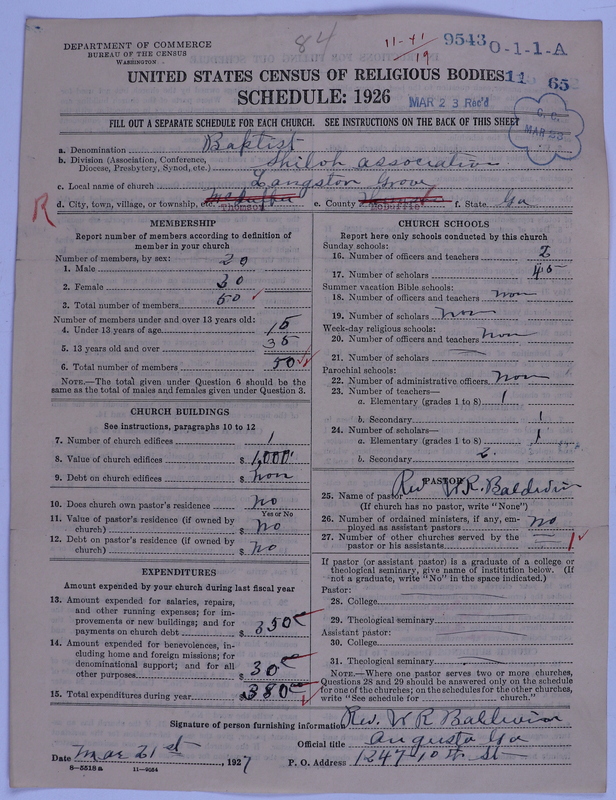 DEPARTMENT OF COMMERCE
BUREAU OF THE CENSUS
WASHINGTON
84
11-41
19
9543 O-1-1-A
11 65
UNITED STATES CENSUS OF RELIGIOUS BODIES
SCHEDULE: 1926
MAR 23 Rec'd
C. C.
MAR 25
FILL OUT A SEPARATE SCHEDULE FOR EACH CHURCH. SEE INSTRUCTIONS ON THE BACK OF THIS SHEET
a. Denomination Baptist
b. Division (Association, Conference, Diocese, Presbytery, Synod, etc.) Shiloh association
c. Local name of church Langston Grove
R
d. City, town, village, or township, etc. Thomson e. County McDuffie f. State Ga
MEMBERSHIP
Report number of members according to definition of member in your church
Number of members, by sex:
1. Male 20
2. Female 30
3. Total number of members 50
Number of members under and over 13 years old:
4. Under 13 years of age 15
5. 13 years old and over 35
6. Total number of members 50
NOTE.—The total given under Question 6 should be the same as the total of males and females given under Question 3.
CHURCH BUILDINGS
See instructions, paragraphs 10 to 12
7. Number of church edifices 1
8. Value of church edifices $ 1,000
9. Debt on church edifices $ non
10. Does church own pastor's residence no
Yes or No
11. Value of pastor's residence (if owned by church) $ No
12. Debt on pastor's residence (if owned by church) $ No
EXPENDITURES
Amount expended by your church during last fiscal year
13. Amount expended for salaries, repairs, and other running expenses; for improvements or new buildings; and for payments on church debt $ 350
14. Amount expended for benevolences, including home and foreign missions; for denominational support; and for all other purposes $ 30
15. Total expenditures during year $ 380
CHURCH SCHOOLS
Report here only schools conducted by this church
Sunday schools:
16. Number of officers and teachers 2
17. Number of scholars 45
Summer vacation Bible schools:
18. Number of officers and teachers non
19. Number of scholars non
Week-day religious schools:
20. Number of officers and teachers non
21. Number of scholars
Parochial schools:
22. Number of administrative officers non
23. Number of teachers—
a. Elementary (grades 1 to 8) 1
b. Secondary 1
24. Number of scholars—
a. Elementary (grades 1 to 8) 1
b. Secondary 2
PASTOR
25. Name of pastor Rev W.R. Baldwin
(If church has no pastor, write "None")
26. Number of ordained ministers, if any, employed as assistant pastors no
27. Number of other churches served by the pastor or his assistants 1
If pastor (or assistant pastor) is a graduate of a college or theological seminary, give name of institution below. (If not a graduate, write "No" in the space indicated.)
Pastor:
28. College
29. Theological seminary
Assistant pastor:
30. College
31. Theological seminary
NOTE.—Where one pastor serves two or more churches, Questions 28 and 29 should be answered only on the schedule for one of the churches; on the schedules for the other churches, write "See schedule for church."
Signature of person furnishing information Rev. W R Baldwin
Official title Augusta Ga
Date Mar 21 st, 1927 P. O. Address 1247-10th St
8-5518a 11-9034